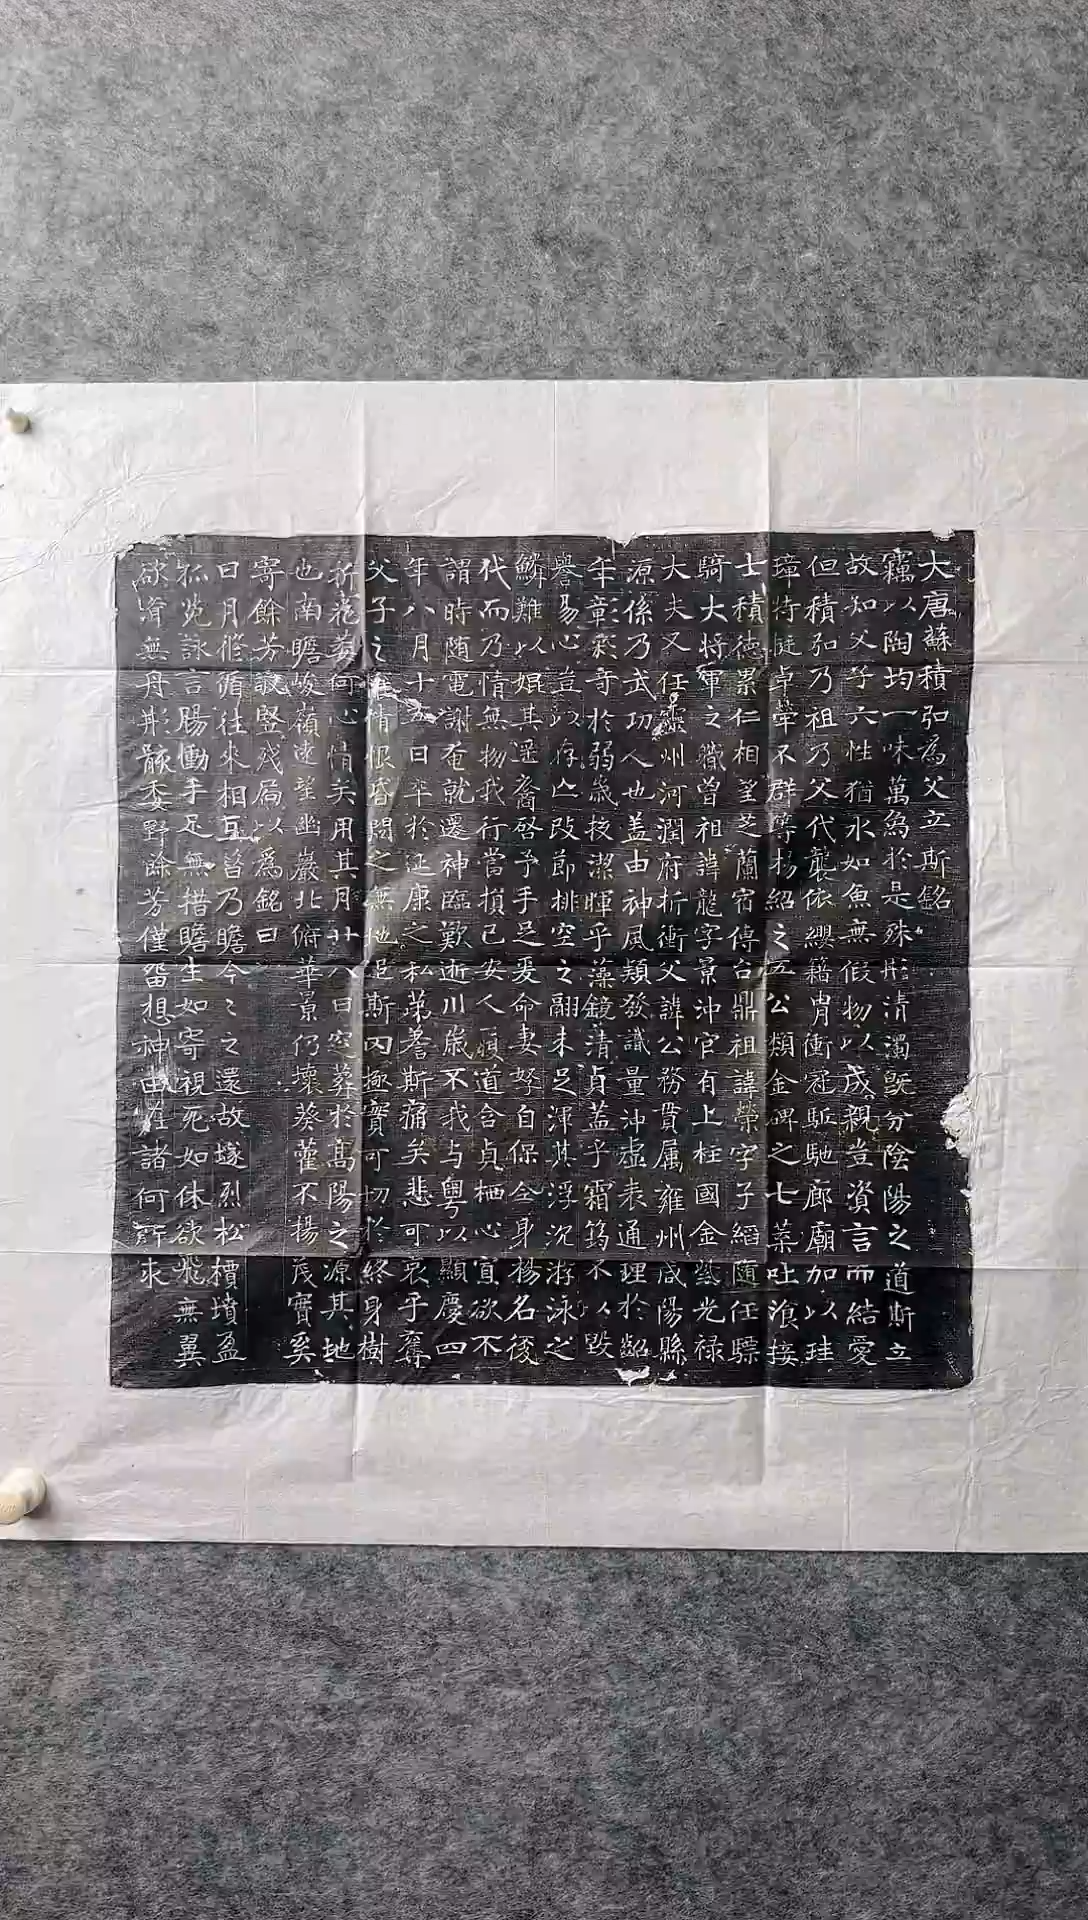 大唐蘇積弘為父立斯銘
竊以陶均一味萬為於是殊形清濁既分陰陽之道斯立
故知父子六性猶水如魚無假物以成親豈資言而結愛
但積弘乃祖乃父代襲依纓籍冑衝冠駈馳廊廟加以珪
璋特挺卓犖不群等楊紹之五公類金碑之七葉吐浪接
士積德累仁相望芝蘭宿傳台鼎祖諱榮字子縚隨任驃
騎大將軍之職曾祖諱龍字景沖官有上柱國金紫光禄
大夫又任靈州河潤府折衝父諱公務貫属雍州咸陽縣
源係乃武功人也盖由神風穎發識量沖虛表通理於齠
年彰彩奇於弱歲挍潔暉乎藻鏡清貞盖乎霜筠不以毀
譽易心豈以存亡改節排空之翮未足渾其浮沉游泳之
鱗難以焜其遥裔啓予手足爰命妻孥自保全身楊名後
代而乃情無物我行當損己安人順道合貞栖心宜欲不
謂時随電謝奄就遷神臨歎逝川歲不我与粤以顯慶四
年八月十 日卒於延康之私第蒼斯痛矣悲可哀乎奪
父子之 情恨昏悶之無地是斯罔極實可切於終身樹
折花萎何心情矣用其月廿八日窆葬於髙陽之源其地
也南瞻峻嶺逺望幽巖北俯華景仍壞葵藿不揚茂實奚
寄餘芳詼竪残局以爲銘曰
日月脩循往來相互昔乃瞻今今之還故㜸烈松檟墳盈
孤苑詠言腸慟手足無措瞻生如寄視死如休欲飛無翼
欲濟無舟形骸委野餘芳僅留想神 住諸何所求